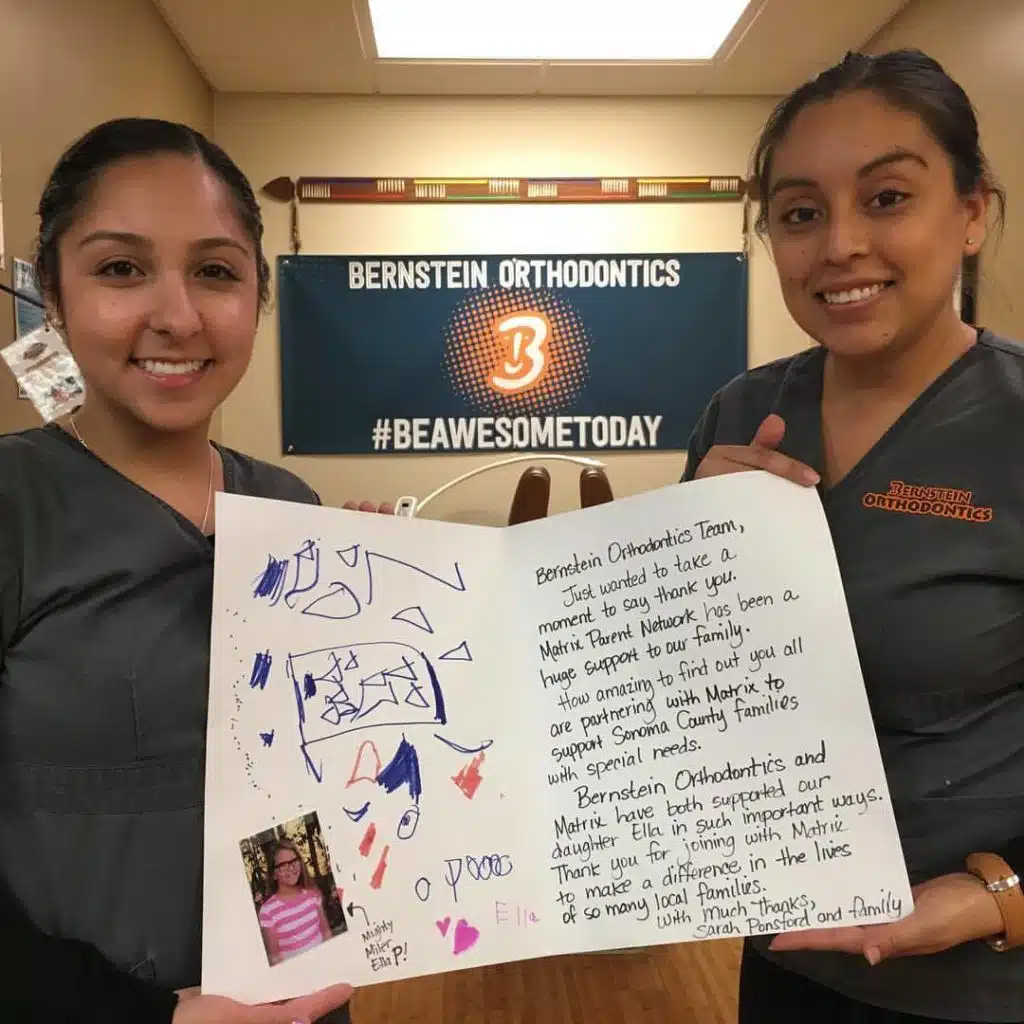 BERNSTEIN ORTHODONTICS
B
#BEAWESOMETODAY
BERNSTEIN
ORTHODONTICS
Bernstein Orthodontics Team,
Just wanted to take a
moment to say thank you.
Matrix Parent Network has been a
huge support to our family.
How amazing to find out you all
are partnering with Matrix to
support Sonoma County families
with special needs.
Bernstein Orthodontics and
Matrix have both supported our
daughter Ella in such important ways.
Thank you for joining with Matrix
to make a difference in the lives
of so many local families.
With much thanks,
Sarah Ponsford and family
Mighty
Miller
Ella P!
Ella